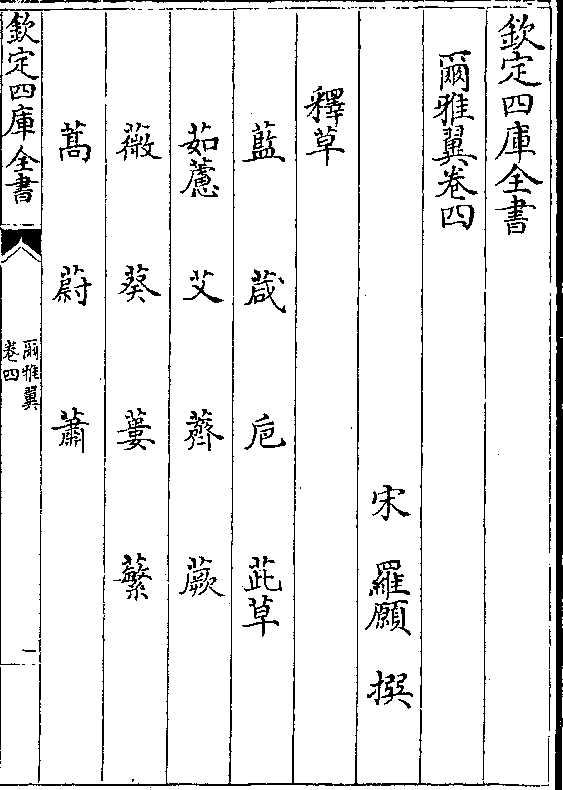 欽定四庫全書
爾雅翼卷四
宋 羅願 撰
釋草
藍 葴 卮 茈草
茹藘 艾 薺 蕨
薇 葵 蔞 蘩
蒿 蔚 蕭
欽定四庫全書
爾雅翼
卷四
一